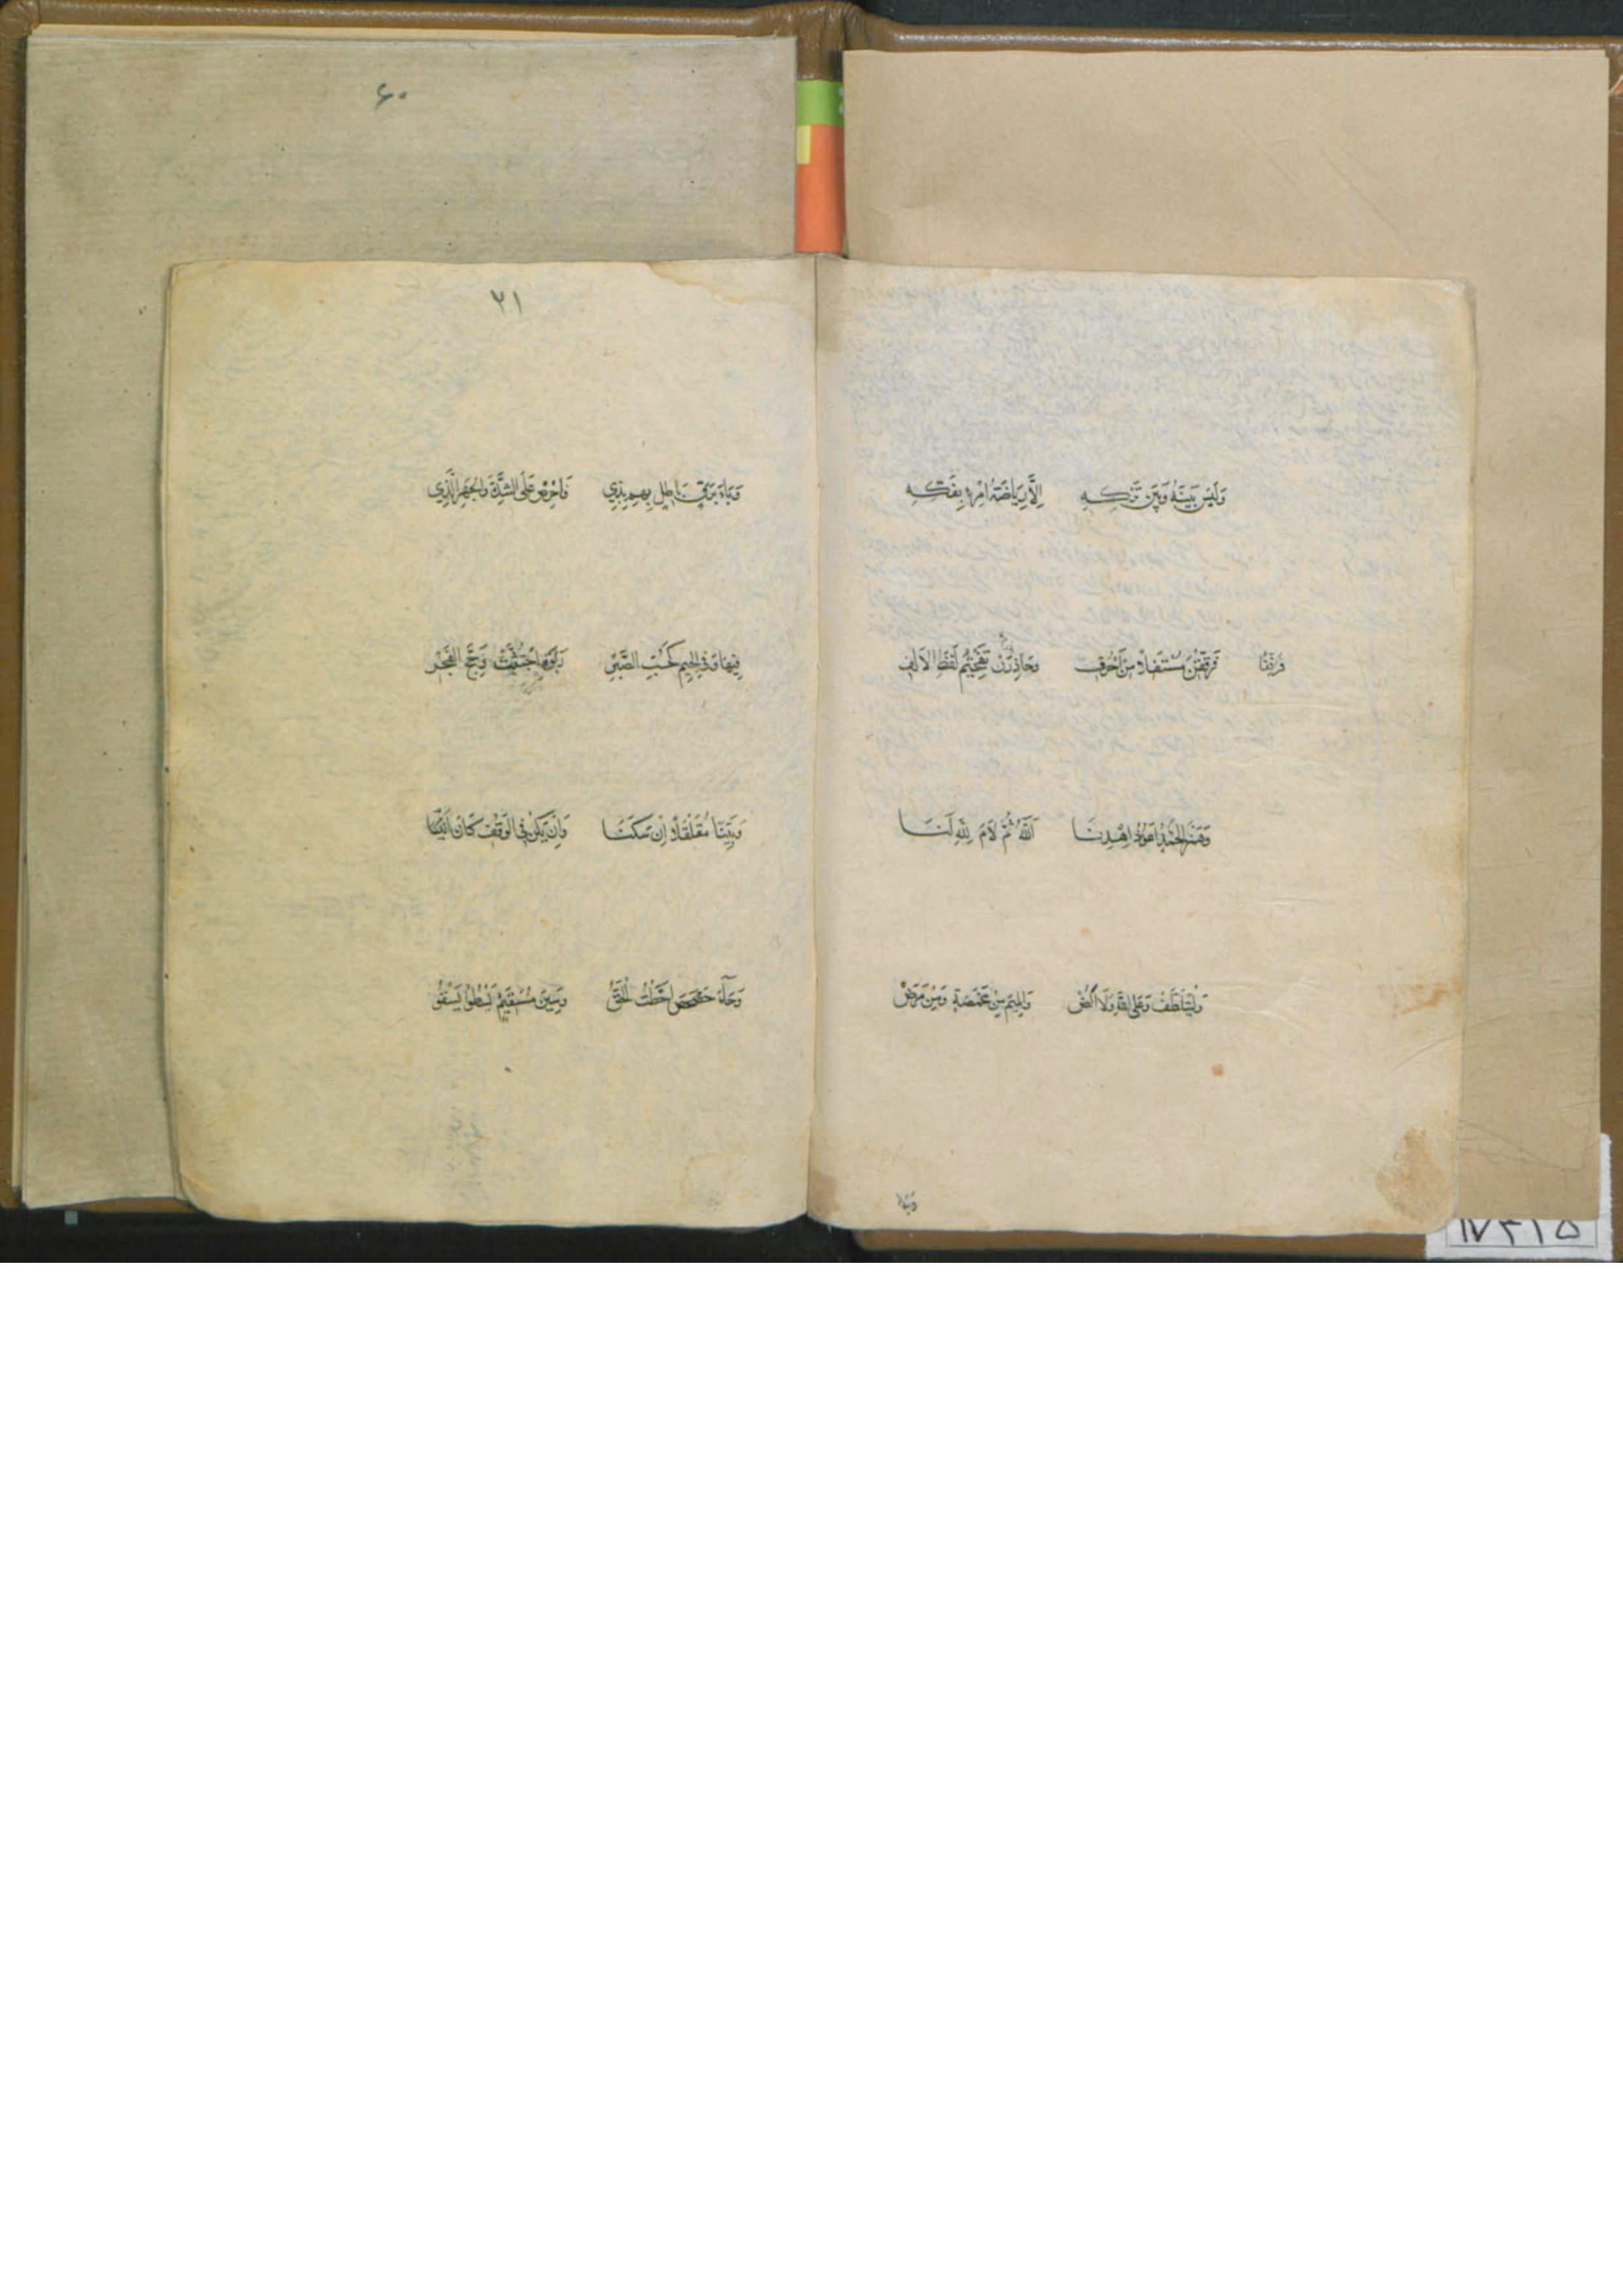 وَلَيْسَ بَيْنَهُ وَبَيْنَ تَرْكِهِ اِلَّا رِيَاضَةُ امْرِءٍ بِفَكِّهِ
فَرَقِّقَنْ مُسْتَفِلًا مِنْ اَحْرُفِ وَحَاذِرَنْ تَفْخِيْمَ لَفْظِ الْاَلِفِ
وَهَمْزَ اَلْحَمْدُ اَعُوْذُ اِهْدِنَا اَللّٰهُ ثُمَّ لَامَ لِلّٰهِ لَنَا
وَلْيَتَلَطَّفْ وَعَلَى اللّٰهِ وَلَا الضْ وَالْمِيْمِ مِنْ مَخْمَصَةٍ وَمِنْ مَرَضْ
۶۰
۲۱
وَبَاءَ بَرْقٍ بَاطِلٍ بِهِمْ بِذِي وَاحْرِصْ عَلَى الشِّدَّةِ وَالْجَهْرِ الَّذِي
فِيْهَا وَفِي الْجِيْمِ كَحُبِّ الصَّبْرِ رَبْوَةٍ اجْتُثَّتْ وَحَجِّ الْفَجْرِ
وَبَيِّنًا مُقَلْقَلًا اِنْ سَكَنَا وَاِنْ يَكُنْ فِي الْوَقْفِ كَانَ اَبْيَنَا
وَحَاءَ حَصْحَصَ اَحَطْتُ الْحَقُّ وَسِيْنَ مُسْتَقِيْمِ يَسْطُوْ يَسْقُوْ